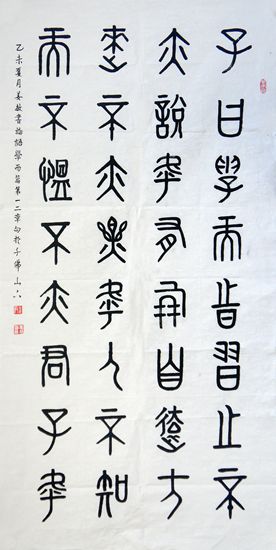 子曰學而時習之不
亦說乎有朋自遠方
來不亦樂乎人不知
而不慍不亦君子乎
乙未夏月姜敏書論語學而篇第一二章句於千佛山